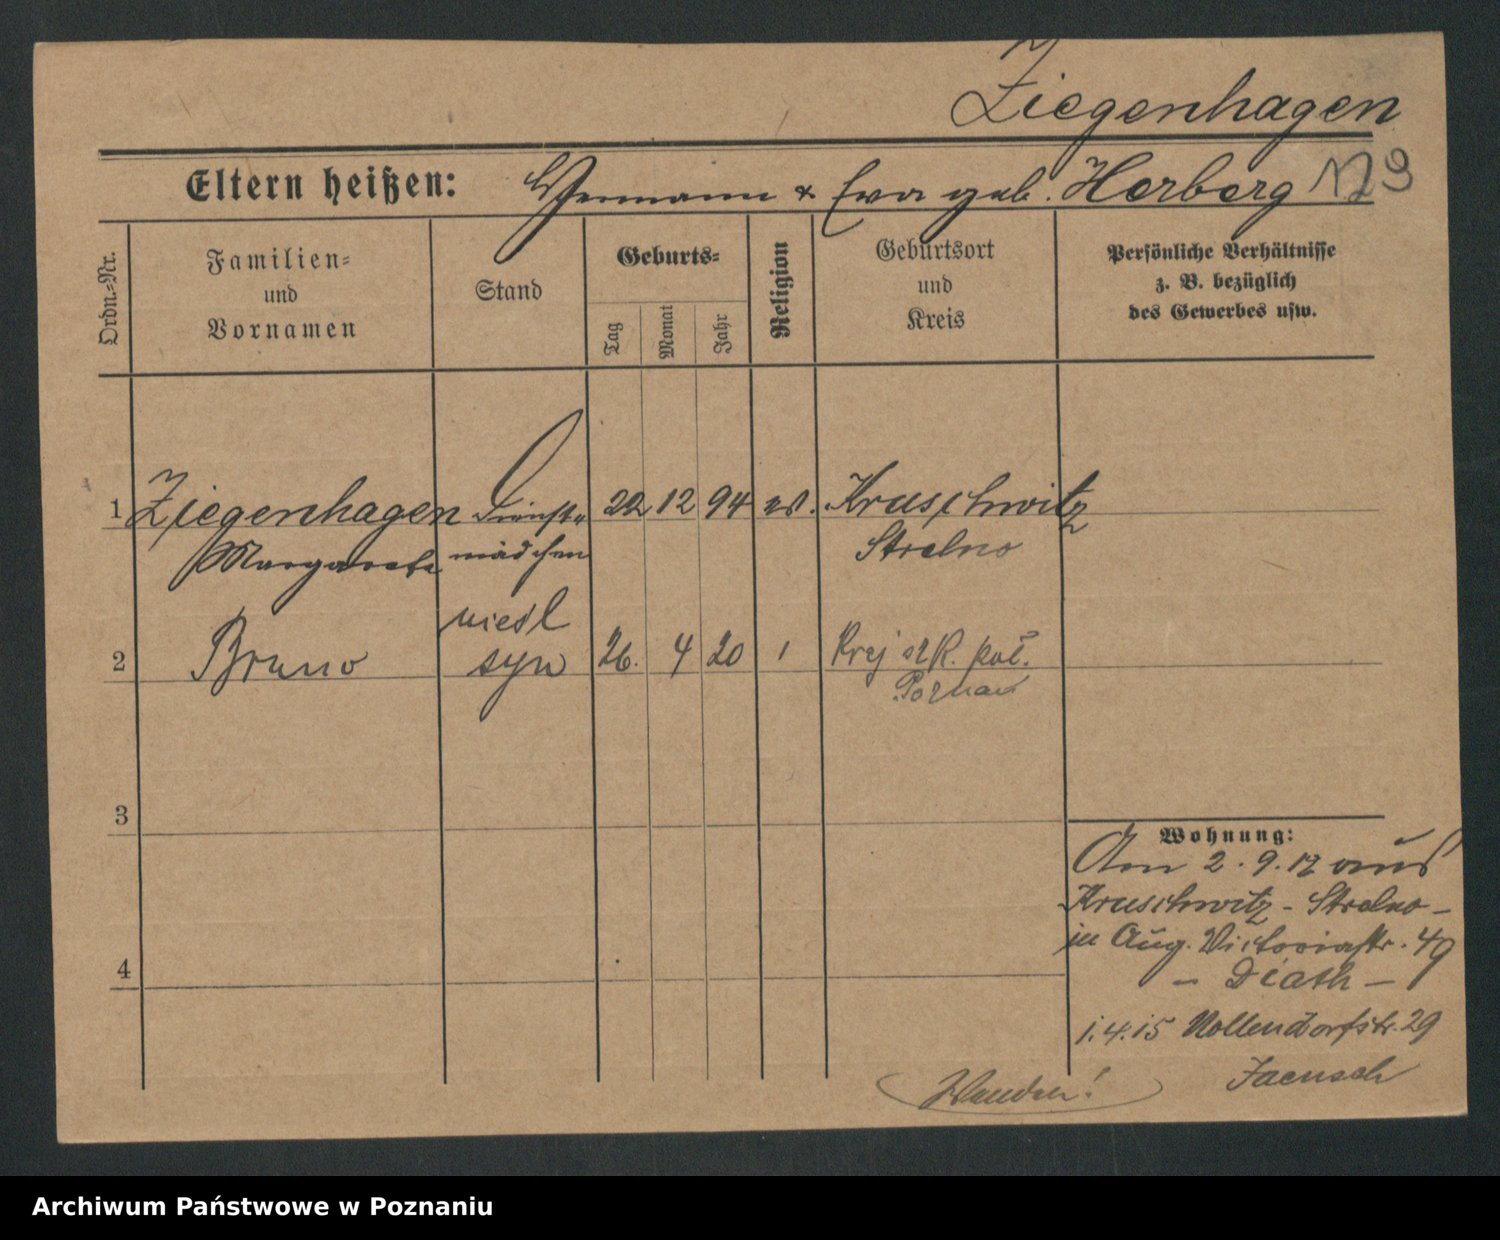 Ziegenhagen
Eltern heißen: Hermann & Eva geb. Herberg
Ordn.=Nr.
Familien=
und
Vornamen
Stand
Geburts=
Tag
Monat
Jahr
Religion
Geburtsort
und
Kreis
Persönliche Verhältnisse
z. B. bezüglich
des Gewerbes usw.
1 Ziegenhagen Dienst= 22 12 94 ev. Kruschwitz
Margarete mädchen Strelno
niesl
2 Bruno syn 26. 4 20 Kraj
Poznań
3
Wohnung:
Am 2. 9. 12 aus
Kruschwitz - Strelno -
in Aug. Victoriastr. 49
4
- Diath -
1.4.15 Nollendorfstr. 29
Jaensch
Wenden!
Archiwum Państwowe w Poznaniu